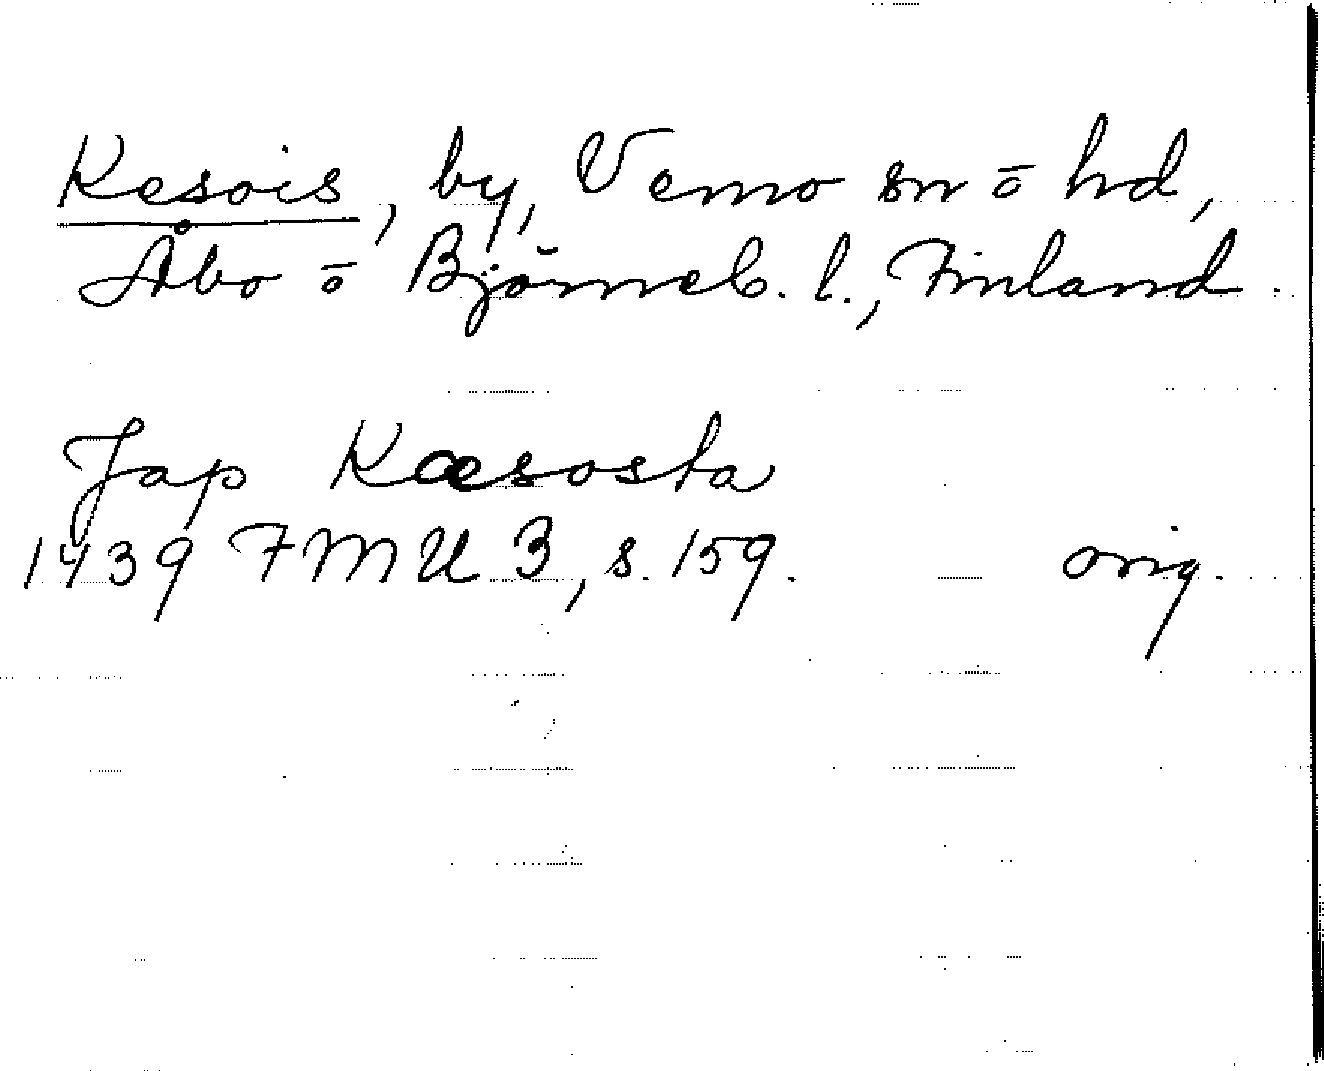 Kesois, by, Vemo sn ō hd,
Åbo ō Björneb. l., Finland.
Jap Kæsosta
1439 FMU 3, s. 159. orig.